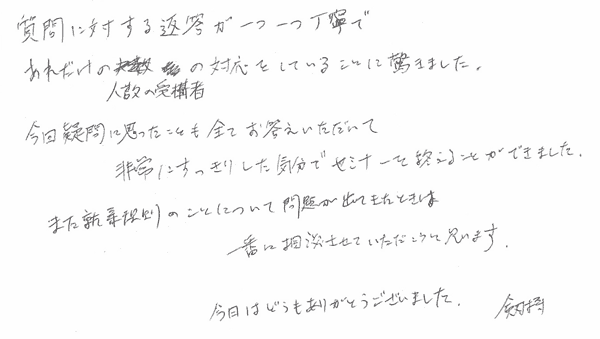 質問に対する返答が一つ一つ丁寧で
あれだけの の対応をしていることに驚きました。
人数の受講者
今回疑問に思ったことも全てお答えいただいて
非常にすっきりした気分でセミナーを終えることができました。
また就業規則のことについて問題が出てきたときは
一番に相談させていただこうと思います。
今日はどうもありがとうございました。 剱持